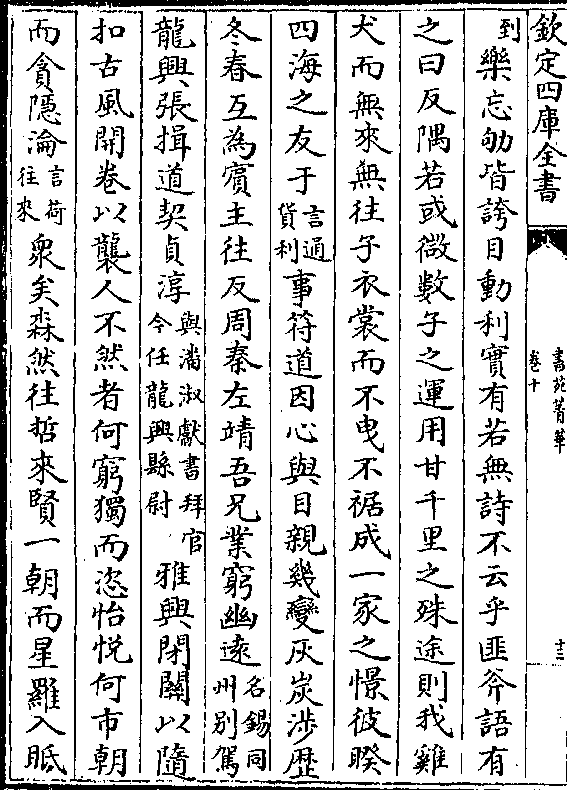 欽定四庫全書
書苑菁華
卷十
十三
到樂忘劬皆誇目動利實有若無詩不云乎匪斧語有
之曰反隅若或微數子之運用甘千里之殊途則我雞
犬而無來無往子衣裳而不曳不裾成一家之憬彼睽
四海之友于言通貨利事符道因心與目親幾變灰炭涉歴
冬春互為賓主往反周秦左靖吾兄業窮幽遠名錫同州别駕
龍興張揖道契貞淳與潘淑獻書拜官今任龍興縣尉雅興閉關以隨
扣古風開卷以襲人不然者何窮獨而恣怡悦何市朝
而貪隱淪言荷往來衆矣森然往哲來賢一朝而星羅入眡